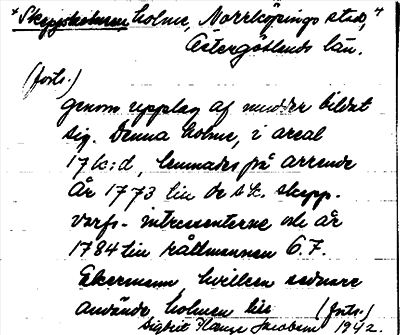 "Skeppsholmen holme, Norrköpings stad,"
Östergötlands län.
(forts.)
genom upplag af mudder bildat
sig. Denna holme, i areal
17 k:d, lemnades på arrende
år 1773 till de s.k. skepp-
varfs-intressenterne och år
1784 till rådmannen C.F.
Ekermann, hvilken sednare
använde holmen till (forts.)
1942.